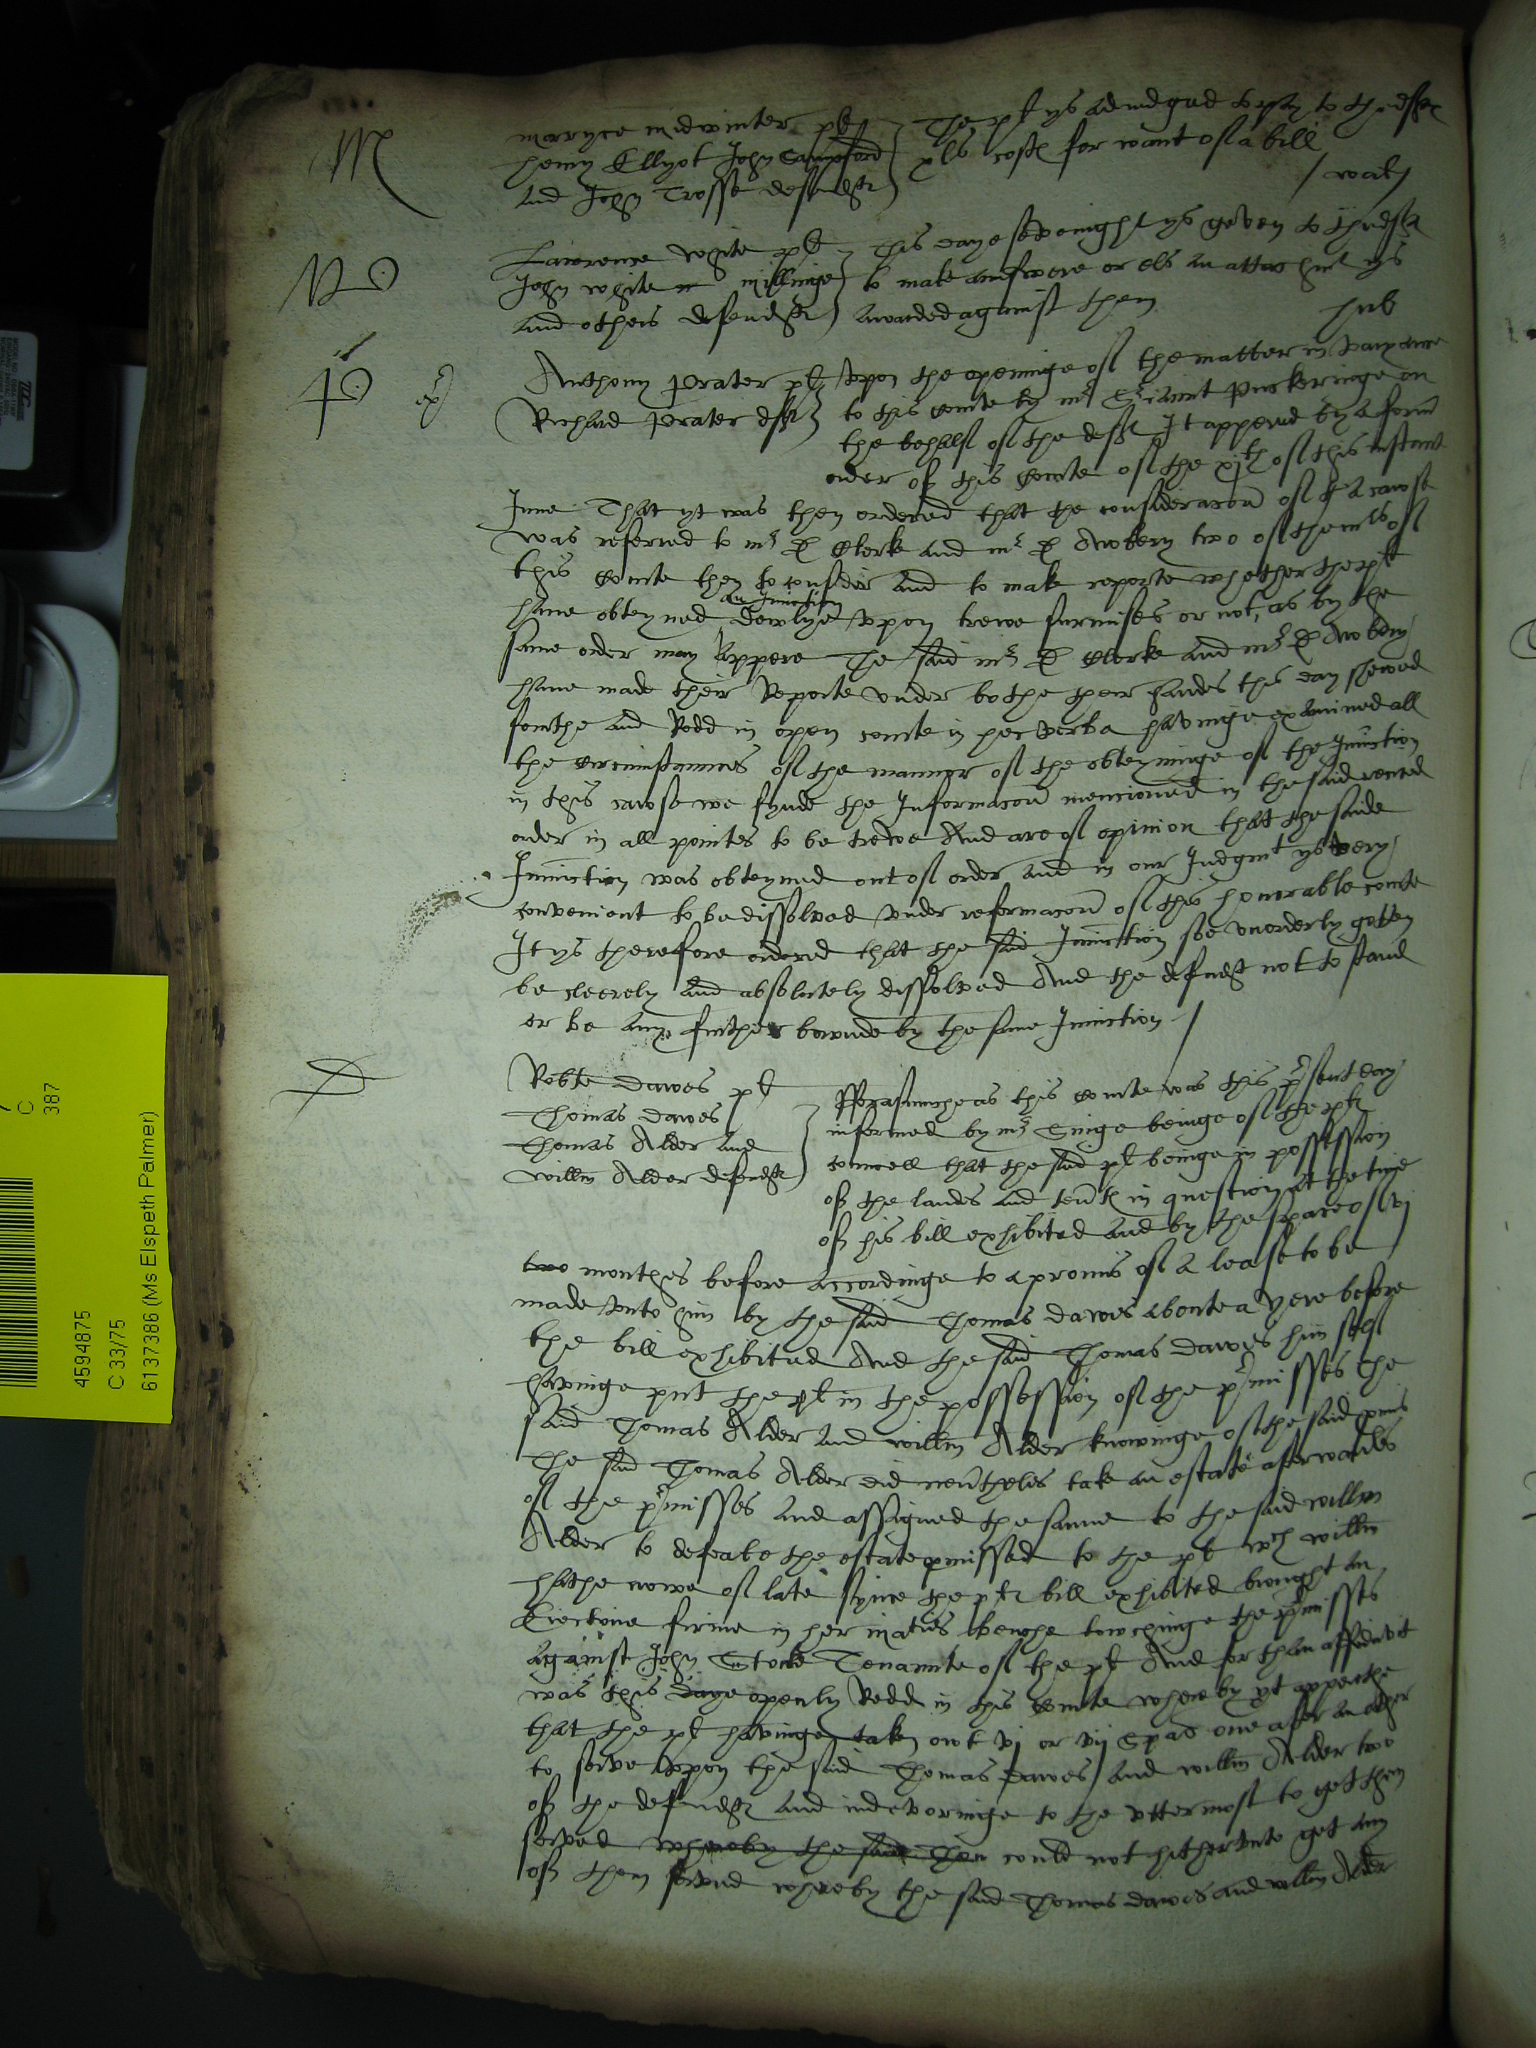 M
marryce midwinter plt
henry Ellyot John Sampford
and John Trosse defendtes
The plt ys adiudged to pay to the deftes
xls costes for want of a bill
/ waly
W
Lawrence white plt
John white m millinge
and others defendtes
This daye sevenight ys geven to the deftes
to make aunswere or els an attachmt ys
awarded against them
hub
P
Anthony Prater plt
Richard Prater deft
Vpon the openinge of the matter in varyance
to this courte by mr Seriaunt Puckeringe on
the behalf of the deft It appered by a form
order of this Courte of the xjth of this instant
June That yt was then ordered that the consideracon of the cawse
was referred to mr D Clerk and mr D Awbery two of the mrs of
this Courte then to consider and to make reporte whether the plt
haue obteyned an Iniunction dewlye vpon trewe surmises or not, as by the
same order may appere The said mr D Clerke and mr D Awbery
haue made their Reporte vnder bothe their handes this day shewed
fourthe and Redd in open courte in hec verba havinge examined all
the circumstaunces of the manner of the obteyninge of the Iniunction
in this cawse we fynde the Informacon mencioned in the said recited
order in all pointes to be trewe And are of opinion that the saide
Iniunction was obteyned out of order and in our Iudgmt ys very
convenient to be dissolved vnder reformacon of this honorable courte
It ys therefore ordered that the said Iniunction soe vnorderly gotten
be cleerely and absolutely dissolved And the defendt not to stand
or be any further bounde by the same Iniunction /
D
Robte Dawes plt
Thomas Dawes
Thomas Alder and
Willm Alder defendtes
Fforasmuche as this courte was this present day
informed by mr Singe beinge of the pltes
councell that the said plt beinge in possession
of the landes and tentes in question at the time
of his bill exhibited and by the space of vj
two monthes before accordinge to a promis of a lease to be
made vnto him by the said Thomas Dawes aboute a yere before
the bill exhibited And the said Thomas Dawes him self
havinge put the plt in the possession of the premisses the
said Thomas Alder and willm Alder knowinge of the said promis
The said Thomas Alder did neutheles take an estate afterwardes
of the premisses and assigned the same to the said willm
Alder to defeate the estate promissed to the plt wch willm
hathe nowe of late synce the pltes bill exhibited brought an
Eiectione firme in her maties benche towchinge the premisses
against John Stocke Tenaunte of the plt And for that an affidavit
was this daye openly Redd in this courte whereby yt appeareth
that the plt havinge taken out vj or vij Spas one after an other
to serve vpon the said Thomas Dawes and willm Alder two
of the defendtes and indevoringe to the vttermost to get them
served whereby the said Thom could not hitherunto get any
of them served whereby the said Thomas Dawes and willm Alder
C
387
4594875
C 33/75
6137386 (Ms Elspeth Palmer)